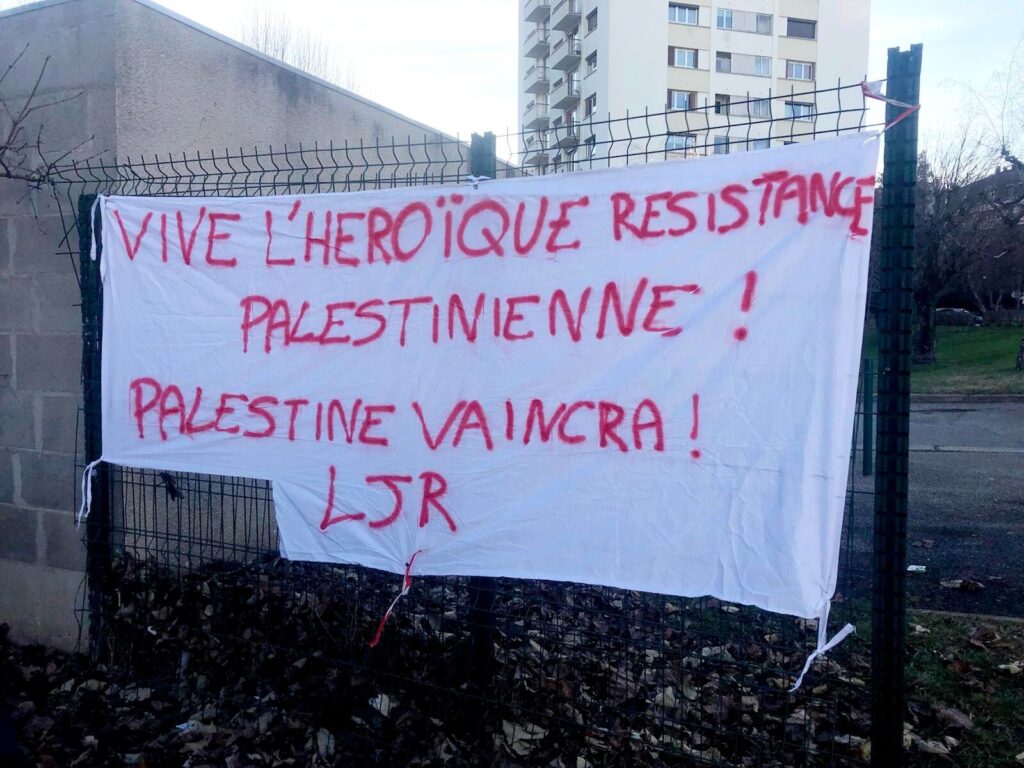 VIVE L'HEROÏQUE RESISTANCE
PALESTINIENNE !
PALESTINE VAINCRA !
LJR